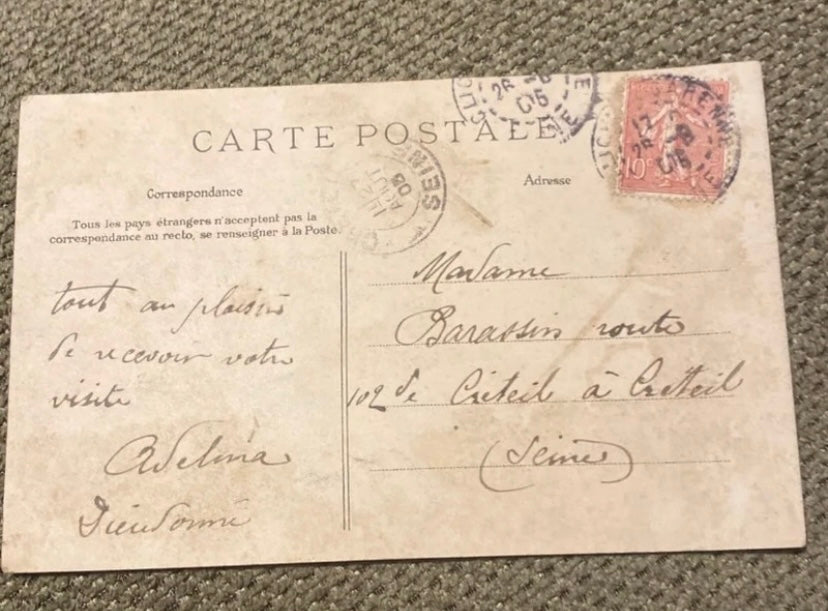 CARTE POSTALE
Correspondance
Adresse
Tous les pays étrangers n'acceptent pas la
correspondance au recto, se renseigner à la Poste.
10c
SEINE
05
tout au plaisir
de recevoir votre
visite
Adelina
Dieudonné
Madame
Barassin route
102 de Créteil à Créteil
(Seine)